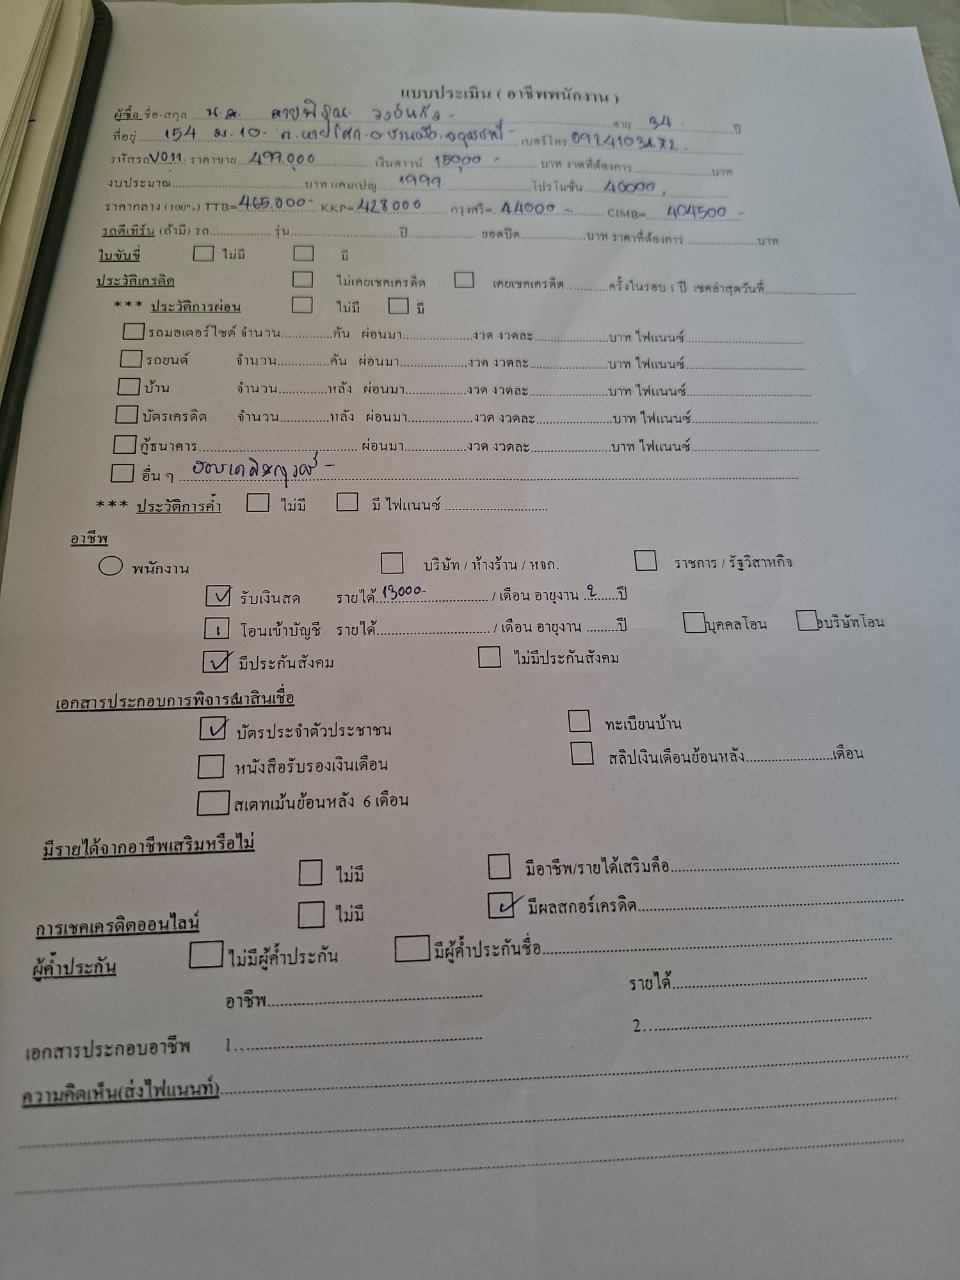 แบบประเมิน ( อาชีพพนักงาน )
ผู้ซื้อ ชื่อ-สกุล น.ส. อายุ 34 ปี
ที่อยู่ 154 ม.10. เบอร์โทร
รหัสรถ V011 ราคาขาย 499,000 เงินดาวน์ 15000 - บาท งวดที่ต้องการ บาท
งบประมาณ บาท แคมเปญ 1999 โปรโมชั่น 40000
ราคากลาง (100%) TTB= 465.000- KKP= 428000 กรุงศรี= 44000 - CIMB= 404500 -
รถตีเทิร์น (ถ้ามี) รถ รุ่น ปี ยอดปิด บาท ราคาที่ต้องการ บาท
ใบขับขี่ ไม่มี มี
ประวัติเครดิต ไม่เคยเชคเครดิต เคยเชคเครดิต ครั้งในรอบ 1 ปี เชคล่าสุดวันที่
*** ประวัติการผ่อน ไม่มี มี
รถมอเตอร์ไซค์ จำนวน คัน ผ่อนมา งวด งวดละ บาท ไฟแนนซ์
รถยนต์ จำนวน คัน ผ่อนมา งวด งวดละ บาท ไฟแนนซ์
บ้าน จำนวน หลัง ผ่อนมา งวด งวดละ บาท ไฟแนนซ์
บัตรเครดิต จำนวน หลัง ผ่อนมา งวด งวดละ บาท ไฟแนนซ์
กู้ธนาคาร ผ่อนมา งวด งวดละ บาท ไฟแนนซ์
อื่น ๆ
*** ประวัติการค้ำ ไม่มี มี ไฟแนนซ์
อาชีพ
พนักงาน บริษัท / ห้างร้าน / หจก. ราชการ / รัฐวิสาหกิจ
รับเงินสด รายได้ 13000- / เดือน อายุงาน 2 ปี
โอนเข้าบัญชี รายได้ / เดือน อายุงาน ปี บุคคลโอน บริษัทโอน
มีประกันสังคม ไม่มีประกันสังคม
เอกสารประกอบการพิจารณาสินเชื่อ
บัตรประจำตัวประชาชน ทะเบียนบ้าน
หนังสือรับรองเงินเดือน สลิปเงินเดือนย้อนหลัง เดือน
สเตทเม้นย้อนหลัง 6 เดือน
มีรายได้จากอาชีพเสริมหรือไม่
ไม่มี มีอาชีพ/รายได้เสริมคือ
การเชคเครดิตออนไลน์ ไม่มี มีผลสกอร์เครดิต
ผู้ค้ำประกัน ไม่มีผู้ค้ำประกัน มีผู้ค้ำประกันชื่อ
อาชีพ รายได้
เอกสารประกอบอาชีพ 1. 2.
ความคิดเห็น(ส่งไฟแนนท์)